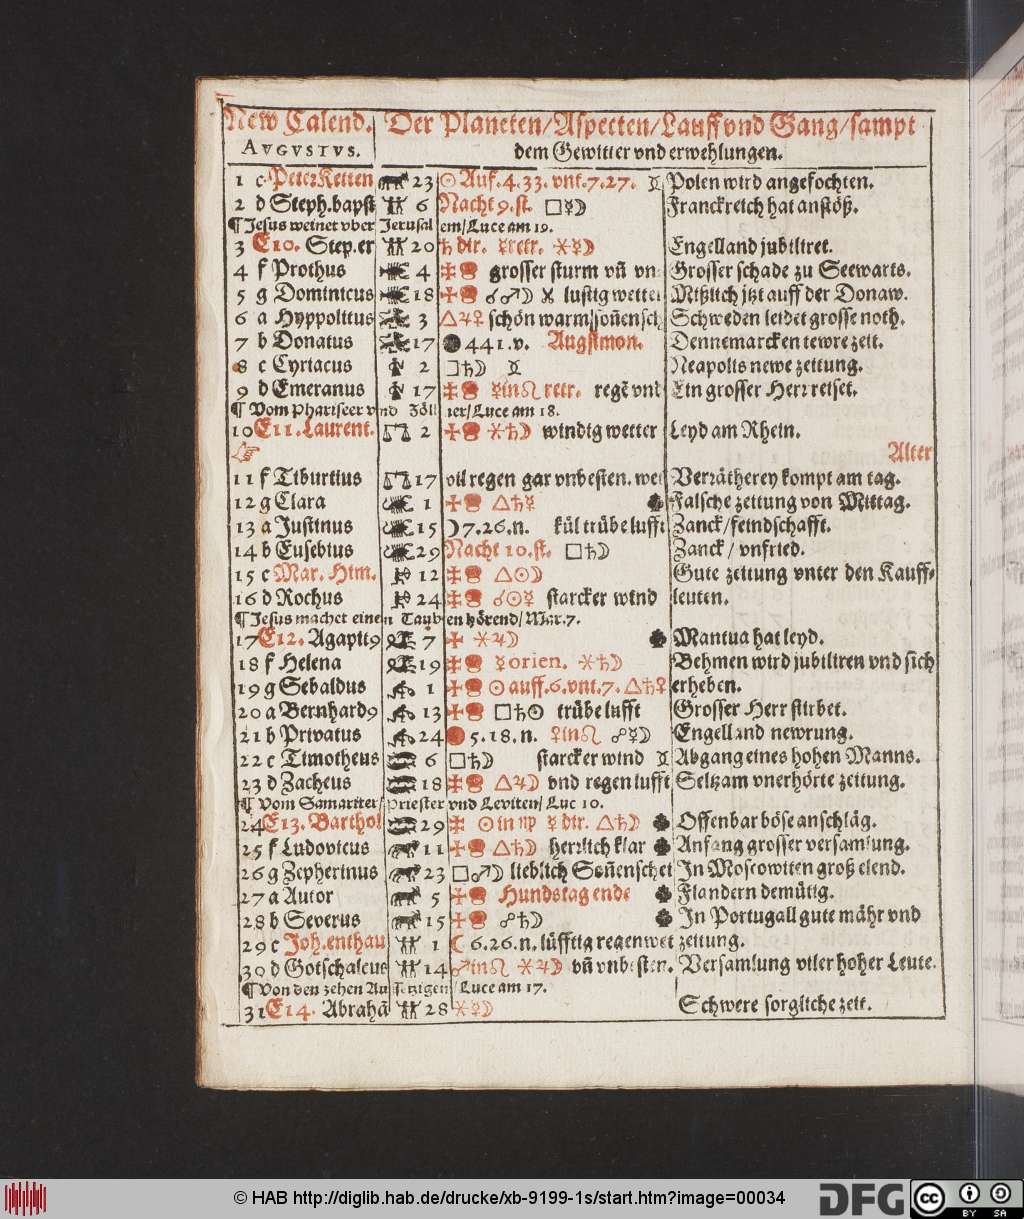 New Calend. Der Planeten/Aspecten/Lauff vnd Gang/sampt
AVGVSTVS. dem Gewitter vnd erwehlungen.
1 c Peter Ketten 23 ☉ Auf. 4. 33. vnt. 7. 27. Polen wird angefochten.
2 d Steph. bapst 6 Nacht 9. st. □☿☽ Franckreich hat anstöß.
¶ Jesus weinet vber Jerusalem/Luce am 19.
3 E10. Step. er 20 ♄ dir. ☿ retr. ⚹☿☽ Engelland jubiliret.
4 f Prothus 4 grosser sturm vñ vn Grosser schade zu Seewarts.
5 g Dominicus 18 ☌♂☽ lustig wetter Mißlich jtzt auff der Donaw.
6 a Hyppolitus 3 △♃♀ schön warm/soñensch Schweden leidet grosse noth.
7 b Donatus 17 ● 4 41. v. Augstmon. Dennemarcken tewre zeit.
8 c Cyriacus 2 □♄☽ Neapolis newe zeitung.
9 d Emeranus 17 ☿ in ♌ retr. regẽ vnd Ein grosser Herr reiset.
¶ Vom Phariseer vnd Zöllner/Luce am 18.
10 E11. Laurent. 2 ⚹♄☽ windig wetter Leyd am Rhein.
☞ Alter
11 f Tiburtius 17 vil regen gar vnbesten. wet Verrätherey kompt am tag.
12 g Clara 1 △♄☿ Falsche zeitung von Mittag.
13 a Justinus 15 ☽ 7. 26. n. kül trübe lufft Zanck/feindschafft.
14 b Eusebius 29 Nacht 10. st. □♄☽ Zanck/ vnfried.
15 c Mar. Him. 12 △☉☽ Gute zeitung vnter den Kauff-
16 d Rochus 24 ☌☉☿ starcker wind leuten.
¶ Jesus machet einen Tauben hörend/Mar. 7.
17 E12. Agapit9 7 ⚹♃☽ Mantua hat leyd.
18 f Helena 19 ☿ orien. ⚹♄☽ Behmen wird jubiliren vnd sich
19 g Sebaldus 1 ☉ auff. 6. vnt. 7. △♄♀ erheben.
20 a Bernhard9 13 □♄☉ trübe lufft Grosser Herr stirbet.
21 b Privatus 24 5. 18. n. ♀ in ♌ ☍☿☽ Engelland newrung.
22 c Timotheus 6 □♄☽ starcker wind Abgang eines hohen Manns.
23 d Zacheus 18 △♃☽ vnd regen lufft Seltzam vnerhörte zeitung.
¶ Vom Samariter/Priester vnd Leviten/ Luc 10.
24 E13. Barthol 29 ☉ in ♍ ☿ dir. △♄☽ Offenbar böse anschläg.
25 f Ludovicus 11 △♄☽ herrlich klar Anfang grosser versamlung.
26 g Zepherinus 23 □♂☽ lieblich Soñenschet In Moscowiten groß elend.
27 a Autor 5 Hundstag ende Flandern demütig.
28 b Severus 15 ☍♄☽ In Portugall gute mähr vnd
29 c Joh. enthau 1 ☾ 6. 26. n. lüfftig regenwet zeitung.
30 d Gotschalcus 14 ♂ in ♌ ⚹♃☽ vñ vnbesten. Versamlung viler hoher Leute.
¶ Von den zehen Aussetzigen/Luce am 17.
31 E14. Abrahã 28 ⚹☿☽ Schwere sorgliche zeit.
© HAB http://diglib.hab.de/drucke/xb-9199-1s/start.htm?image=00034 DFG cc BY SA